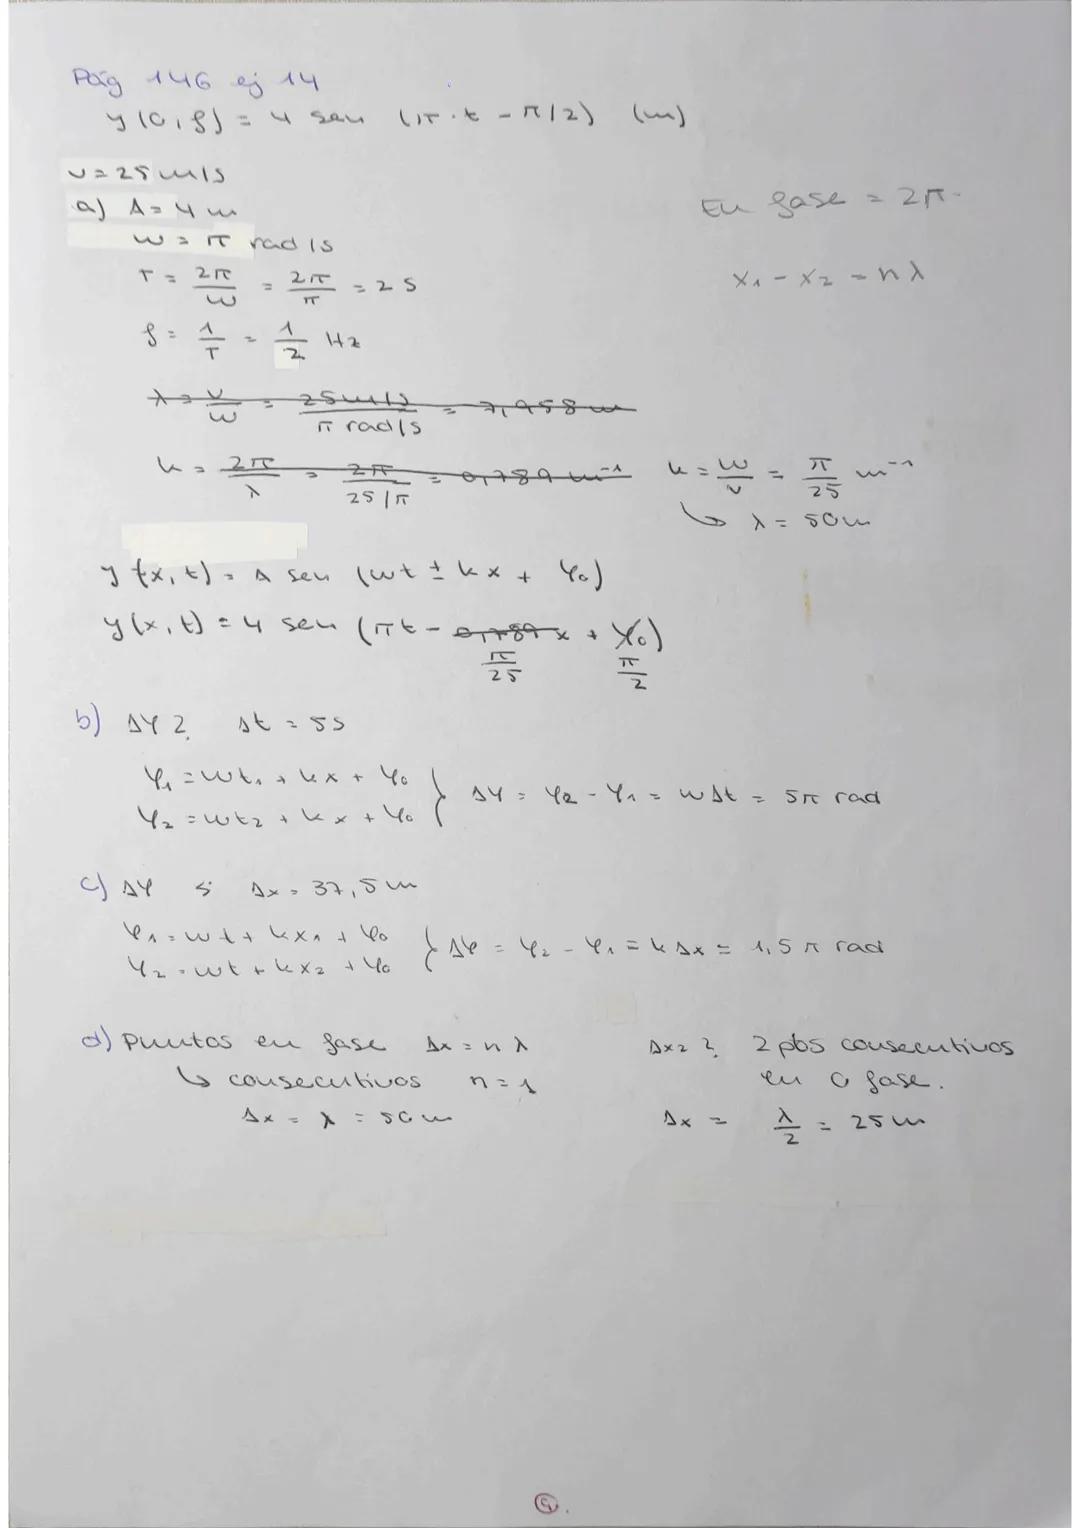 Pág 146 ej 14
y(0,f) = 4 sen (π·t - π/2) (m)
v = 25 m/s
a) A = 4 m
En fase = 2π.
w = π rad/s
T = 2π/w = 2π/π = 2 s
x₁ - x₂ = nλ
f = 1/T = 1/2 Hz
λ = v/w = 25 m/s / π rad/s = 7,958 m
k = 2π/λ = 2π/25/π = 0,789 m⁻¹ k = w/v = π/25 m⁻¹
↳ λ = 50 m
y(x,t) = A sen (wt ± kx + φ₀)
y(x,t) = 4 sen (πt - 0,789 x + φ₀)
π/25 π/2
b) Δφ? Δt = 5s
φ₁ = wt₁ + kx + φ₀
φ₂ = wt₂ + kx + φ₀ } Δφ = φ₂ - φ₁ = wΔt = 5π rad
c) Δφ si Δx = 37,5 m
φ₁ = wt + kx₁ + φ₀
φ₂ = wt + kx₂ + φ₀ } Δφ = φ₂ - φ₁ = kΔx = 1,5 π rad
d) Puntos en fase Δx = nλ
↳ consecutivos n = 1
Δx = λ = 50 m
Δx₂? 2 ptos consecutivos
en O fase.
Δx = λ/2 = 25 m